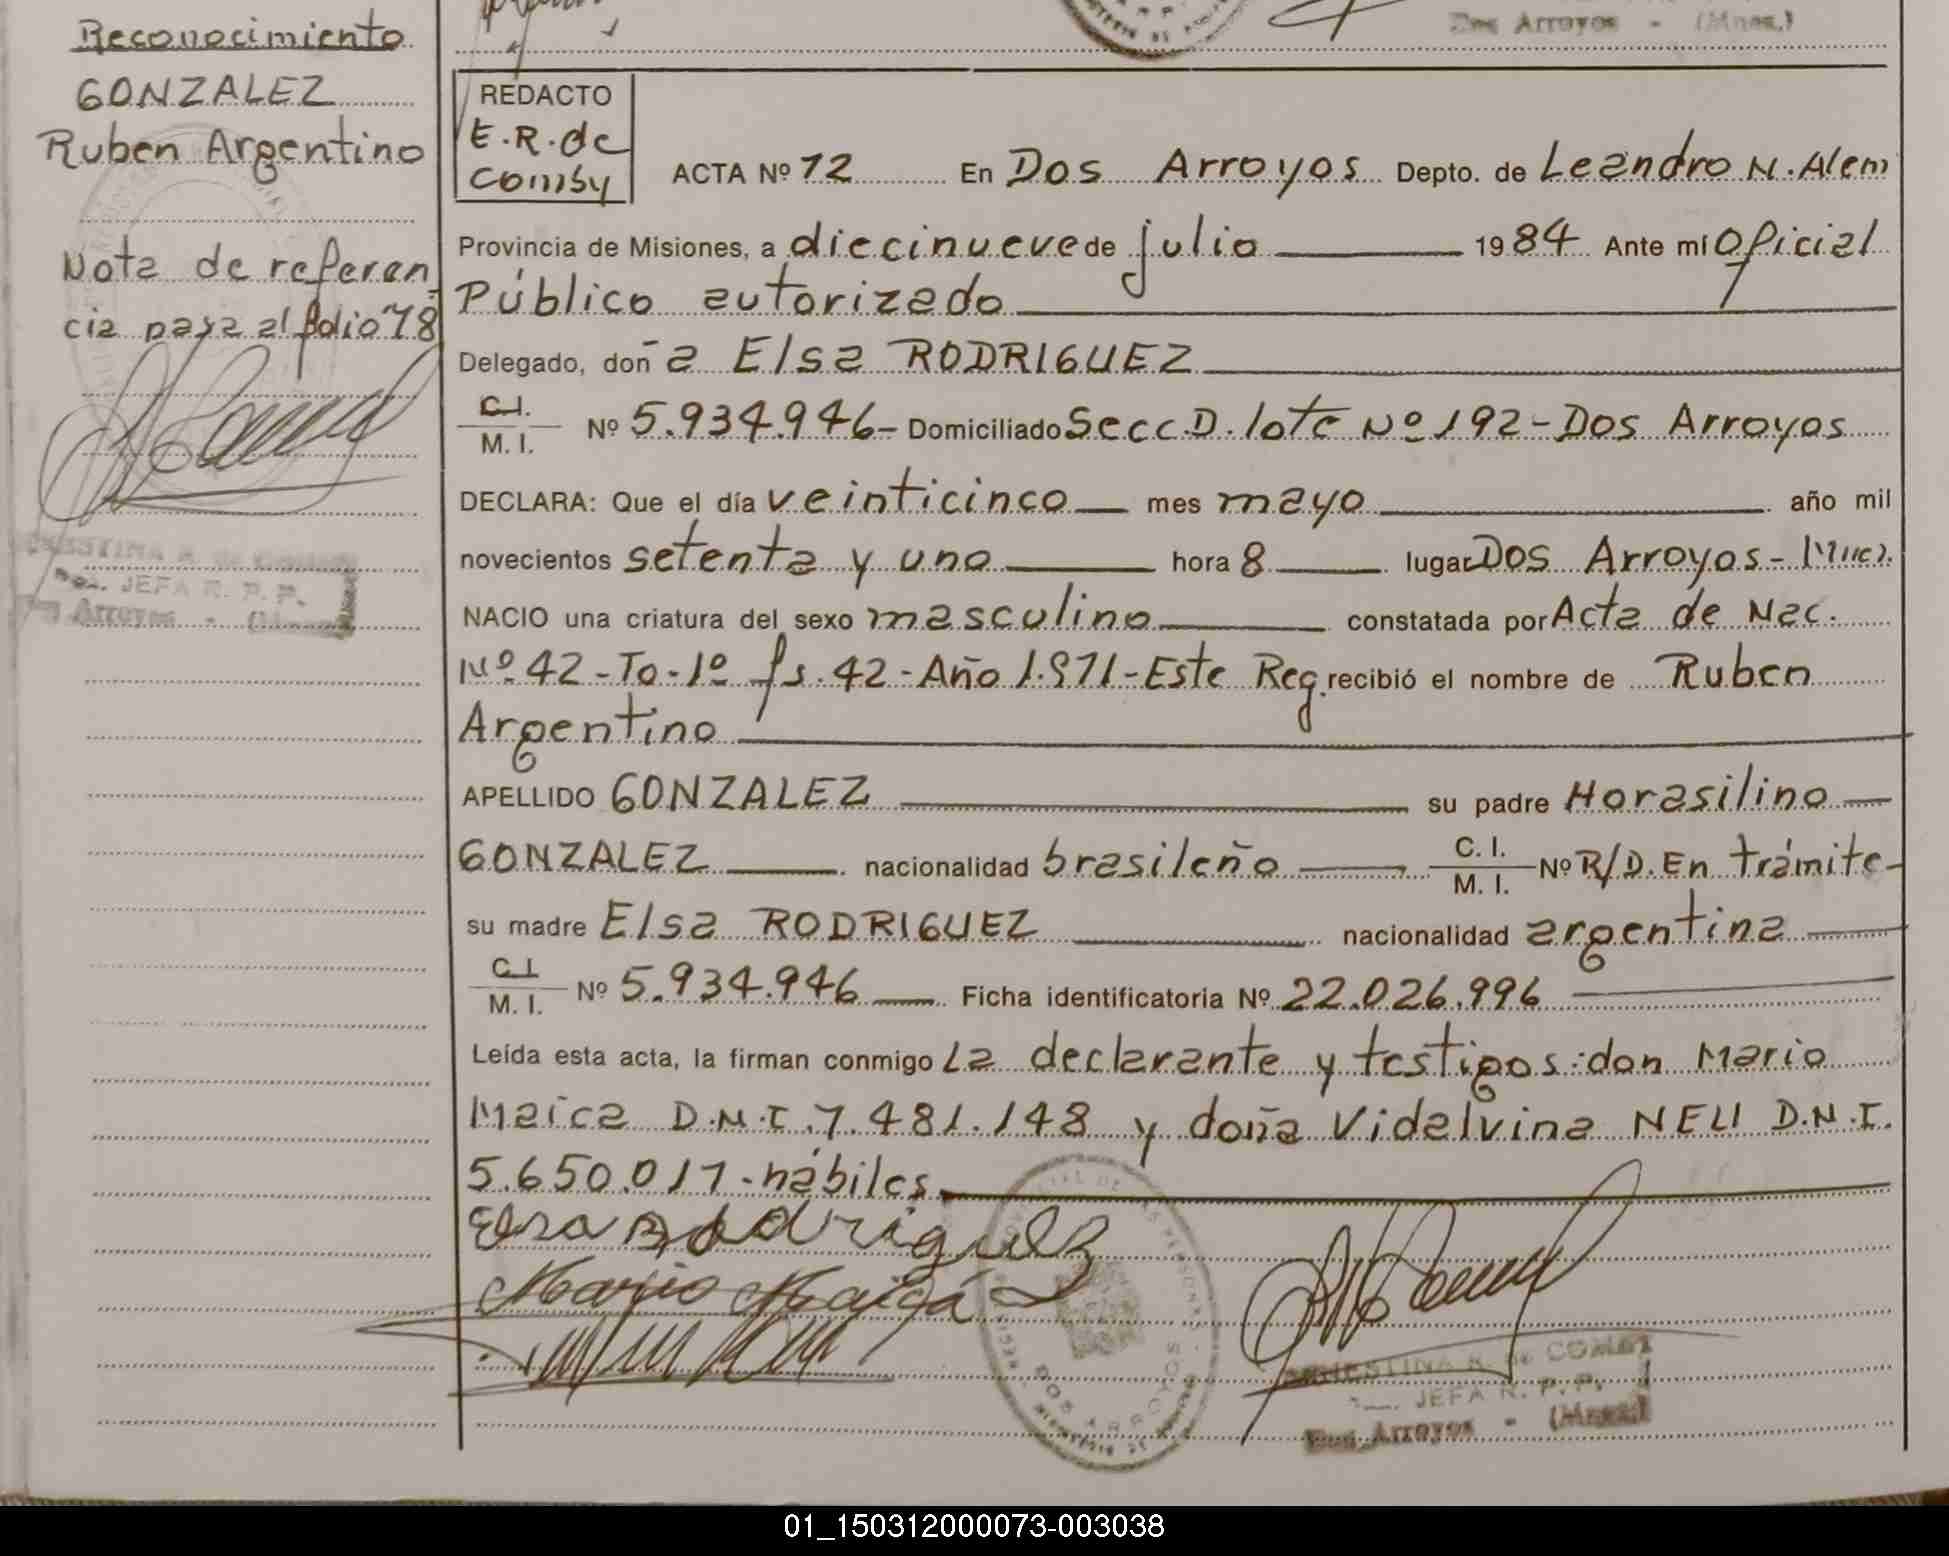 Dos Arroyos - (Mnes.)
Reconocimiento
GONZALEZ
Ruben Argentino
Nota de referen
cia pasa al folio 78
JEFA R. P. P.
Dos Arroyos - (Mnes.)
REDACTO
E.R. de
Comby
ACTA Nº 72 En Dos Arroyos Depto. de Leandro N. Alem
Provincia de Misiones, a diecinueve de julio 1984 Ante mí Oficial
Público autorizado
Delegado, doña Elsa RODRIGUEZ
C.I.
M. I. Nº 5.934.946- Domiciliado Secc.D. lote Nº 192-Dos Arroyos
DECLARA: Que el día veinticinco mes mayo año mil
novecientos setenta y uno hora 8 lugar Dos Arroyos-
NACIO una criatura del sexo masculino constatada por Acta de Nac.
Nº 42-To-1º fs.42-Año 1.971-Este Reg. recibió el nombre de Ruben
Argentino
APELLIDO GONZALEZ su padre Horasilino
GONZALEZ nacionalidad brasileño C. I.
M. I. Nº R/D. En trámite-
su madre Elsa RODRIGUEZ nacionalidad argentina
C.I.
M. I. Nº 5.934.946 Ficha identificatoria Nº 22.026.996
Leída esta acta, la firman conmigo La declarante y testigos: don Mario
Maica D.N.I. 7.481.148 y doña Vidalvina NELI D.N.I.
5.650.017-hábiles.
Elsa Rodriguez
Mario Maica
DOS ARROYOS
ERNESTINA R. de COMBY
JEFA R. P. P.
Dos Arroyos - (Mnes.)
01_150312000073-003038